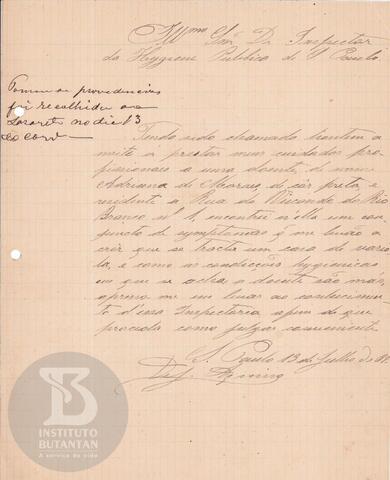 Illmo Snr. Dr. Inspector
da Hygiene Publica de S. Paulo.
Tomou-se providencias
foi recolhida ao
Lazareto no dia 13
do corr.
Tendo sido chamado hontem a
noite a prestar meus cuidados pro-
fissionaes a uma doente, de nome
Adriana de Moraes, de côr preta, e
residente a Rua do Visconde do Rio
Branco nº 1, encontrei n'ella um con-
juncto de symptomas q. me levão a
crêr que se tracta um caso de vario-
la, e como as condicções hygienicas
em que se acha a doente são más,
apresso-me em levar ao conhecimen-
to d'essa Inspectoria afim de que
proceda como julgar conveniente.
S. Paulo 13 de Julho de
Dr. J.
INSTITUTO
BUTANTAN
A serviço da vida